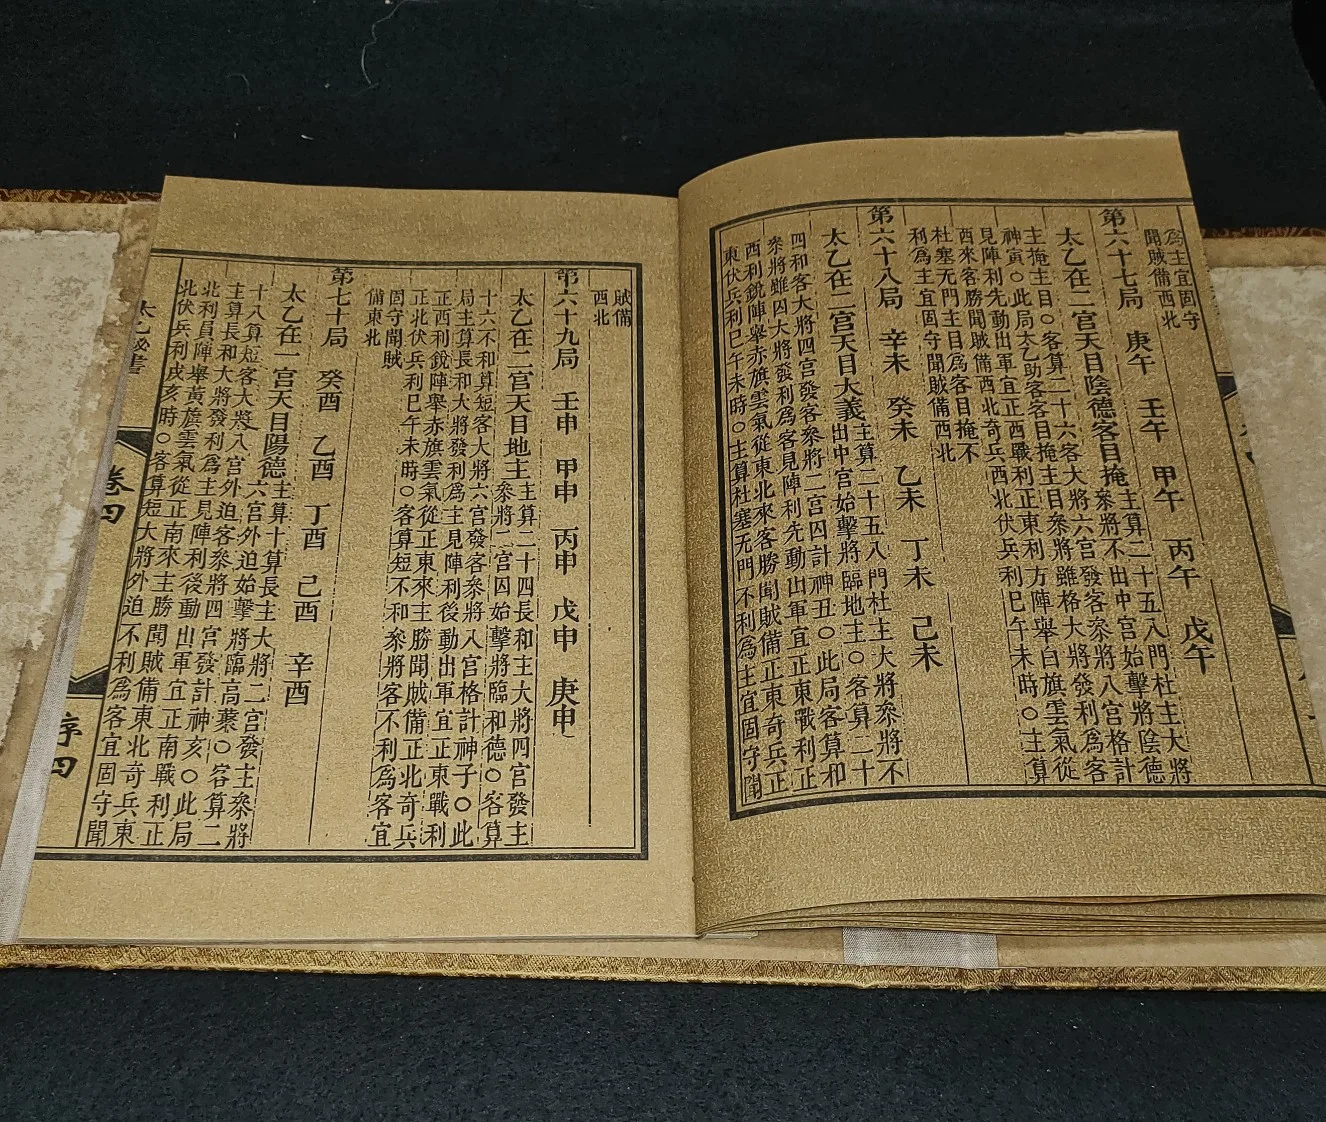 為主宜固守
聞賊備西北
第六十七局 庚午 壬午 甲午 丙午 戊午
太乙在二宮天目陰德客目掩主算二十五八門杜主大將
參將不出中宮始擊將陰德
主掩主目○客算二十六客大將六宮發客參將八宮格計
神寅○此局太乙助客客目掩主目參將雖格大將發利為客
見陣利先動出軍宜正西戰利正東利方陣舉白旗雲氣從
西來客勝聞賊備西北奇兵西北伏兵利巳午未時○主算
杜塞无門主目為客目掩不
利為主宜固守聞賊備西北
第六十八局 辛未 癸未 乙未 丁未 己未
太乙在二宮天目大義主算二十五八門杜主大將參將不
出中宮始擊將臨地主○客算二十
四和客大將四宮發客參將二宮囚計神丑○此局客算和
參將雖囚大將發利為客見陣利先動出軍宜正東戰利正
西利銳陣舉赤旗雲氣從東北來客勝聞賊備正東奇兵正
東伏兵利巳午未時○主算杜塞无門不利為主宜固守聞
賊備
西北
第六十九局 壬申 甲申 丙申 戊申 庚申
太乙在二宮天目地主主算二十四長和主大將四宮發主
參將二宮囚始擊將臨和德○客算
十六不和算短客大將六宮發客參將八宮格計神子○此
局主算長和大將發利為主見陣利後動出軍宜正東戰利
正西利銳陣舉赤旗雲氣從正東來主勝聞賊備正北奇兵
正北伏兵利巳午未時○客算短不和參將客不利為客宜
固守聞賊
備東北
第七十局 癸酉 乙酉 丁酉 己酉 辛酉
太乙在一宮天目陽德主算十算長主大將二宮發主參將
六宮外迫始擊將臨高叢○客算二
十八算短客大將八宮外迫客參將四宮發計神亥○此局
主算長和大將發利為主見陣利後動出軍宜正南戰利正
北利員陣舉黃旗雲氣從正南來主勝聞賊備東北奇兵東
北伏兵利戌亥時○客算短大將外迫不利為客宜固守聞
太乙秘書
卷四
序四